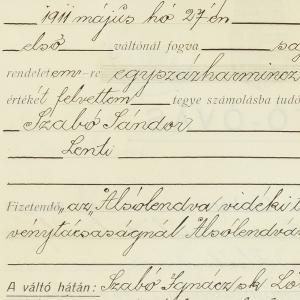 1911 május hó 27 én
első váltónál fogva
rendeletem-re egyszázharmincz
értékét felvettem tegye számolásba tudó
Szabó Sándor
Lenti
Fizetendő „az „Alsólendva vidéki t
vénytársaságnál Alsólendvá
A váltó hátán: Szabó Ignácz sk Lo